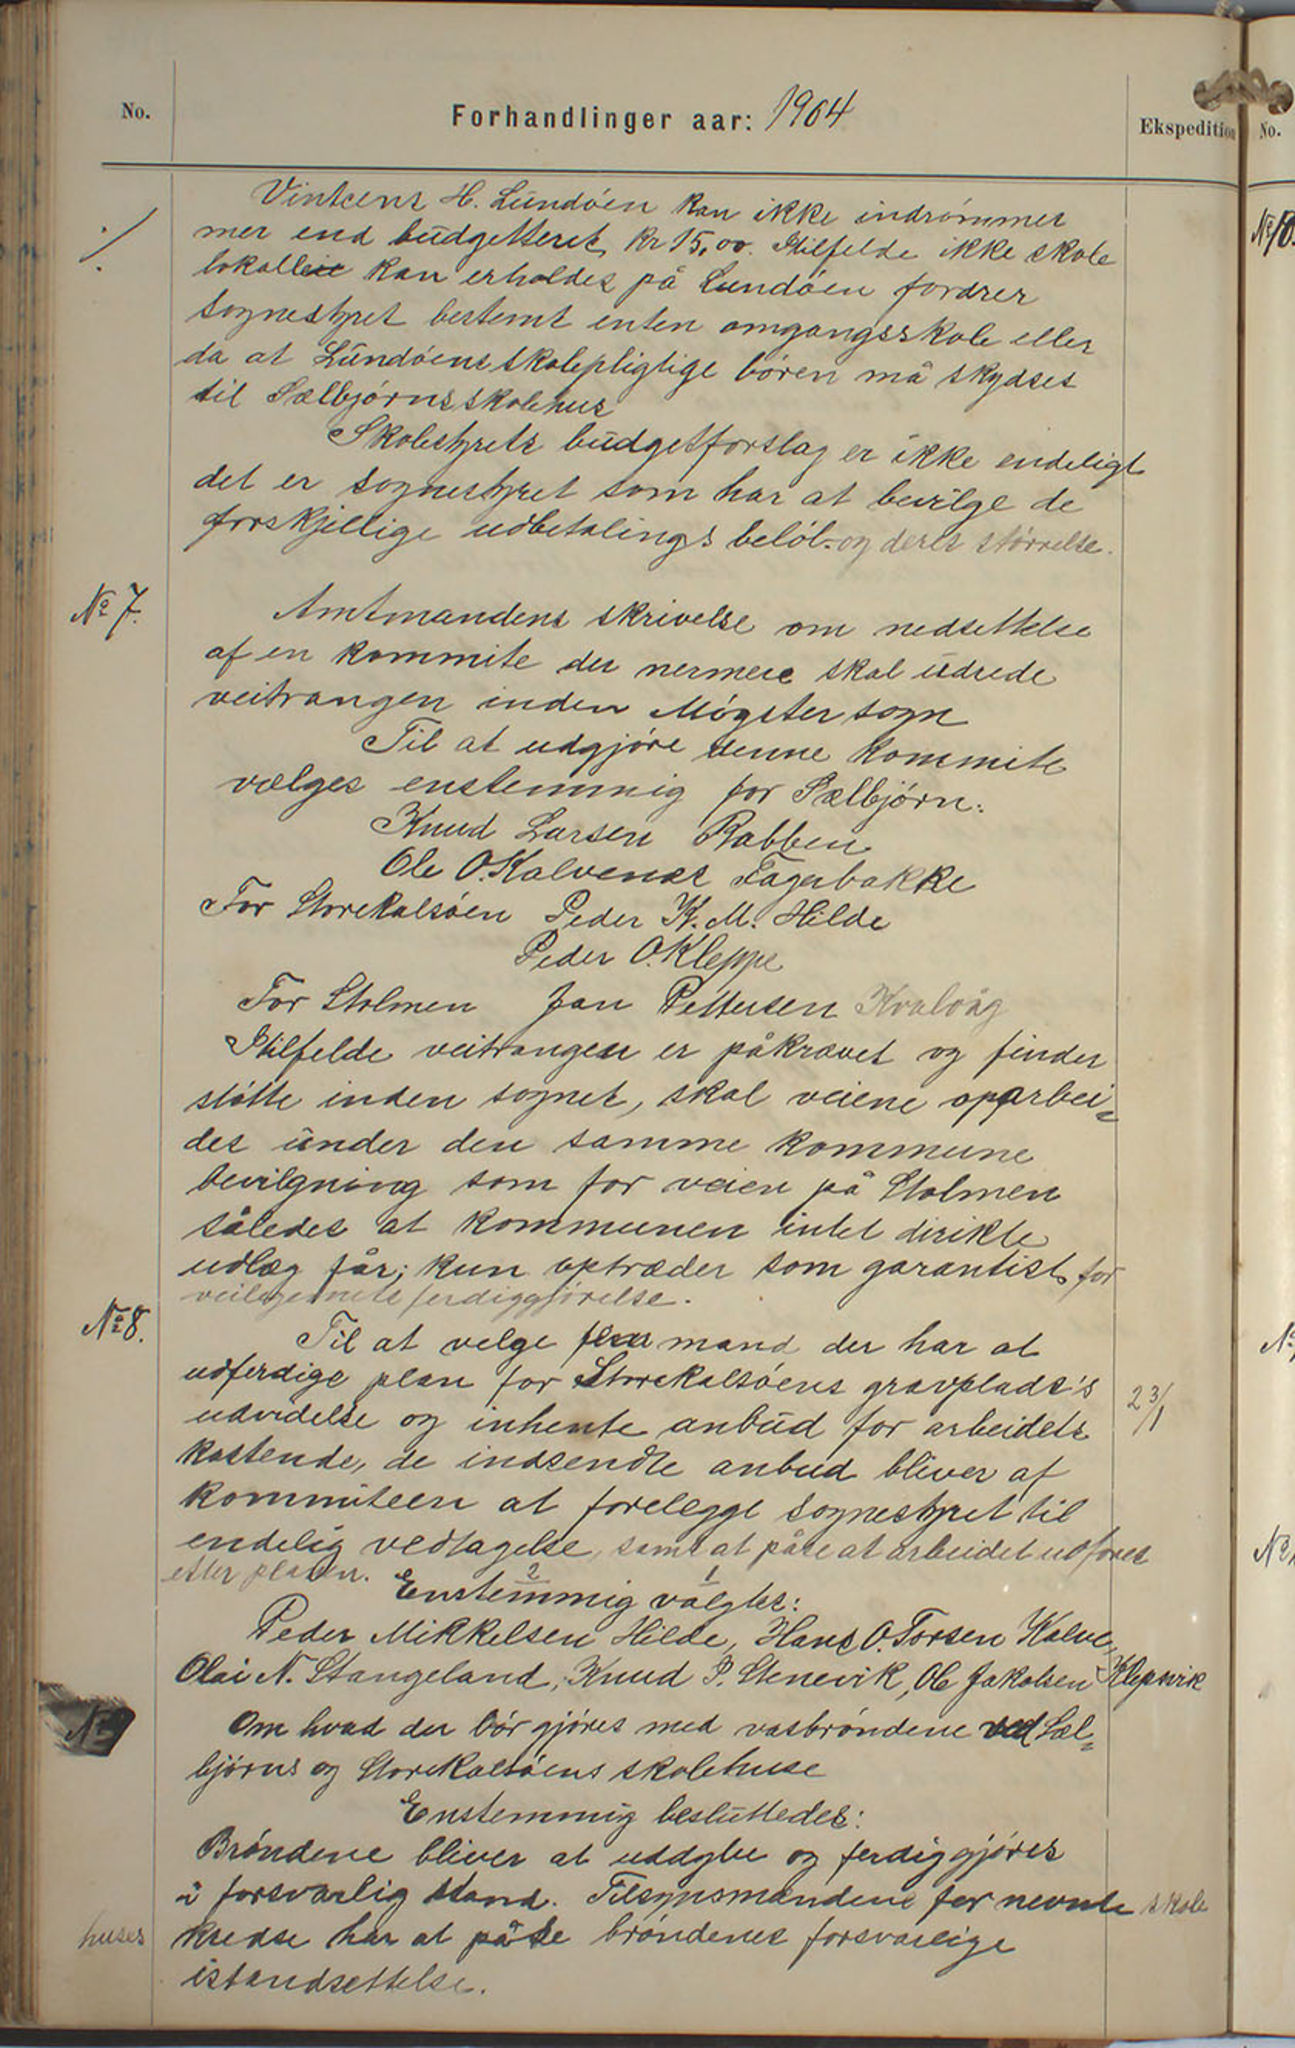 No.
Forhandlinger aar: 1904
Ekspedition
No.
Vintcens H. Lundöen kan ikke indrömmes
mer end budgetteret, kr 15,00. Itilfelde ikke skole
lokalleie kan erholdes på Lundöen fordrer
sognestyret bestemt enten omgangsskole eller
da at Lundöens skolepligtige bören må skydses
til Sælbjörns skolehus
Skolestyrets budgetforslag er ikke endeligt
det er sognestyret som har at bevilge de
forskjellige udbetalings belöb og deres störrelse.
No 7.
Amtmandens skrivelse om nedsettelse
af en kommite der nermere skal udrede
veitrangen inden Mögster sogn
Til at udgjöre denne kommite
vælges enstemmig for Sælbjörn:
Knud Larsen Rabben
Ole O. Kalvenes Fagerbakke
For Storekalsöen Peder K. M. Hilde
Peder O. Kleppe
For Stolmen Jan Pettersen Kvalvåg
Itilfelde veitrangen er påkrævet og finder
stötte inden sognet, skal veiene oparbei-
des under den samme kommune
bevilgning som for veien på Stolmen
således at kommunen intet dirikte
udlæg får; kun optræder som garantist for
ferdiggjörelse.
No 8.
Til at velge mand der har at
udferdige plan for Storekalsöens gravplads's
udvidelse og inhente anbud for arbeidets
23/1
kostende, de indsendte anbud bliver af
kommiteen at forelegge sognestyret til
endelig vedtagelse, samt at påse at arbeidet udföres
etter planen.
Enstemmig valgtes:
2 1
Peder Mikkelsen Hilde, Hans O. Torsen Kalve,
Olai N. Stangeland, Knud P. Stenevik, Ole Jakobsen Klepsvik
No
Om hvad der bör gjöres med vasbröndene ved Sæl-
björns og Storekalsöens skolehuse
Enstemmig besluttedes:
Bröndene bliver at uddybe og ferdiggjöres
i forsvarlig stand. Tilsynsmændene for nevnte skole
huses kredse har at påse bröndenes forsvarlige
istandsettelse.